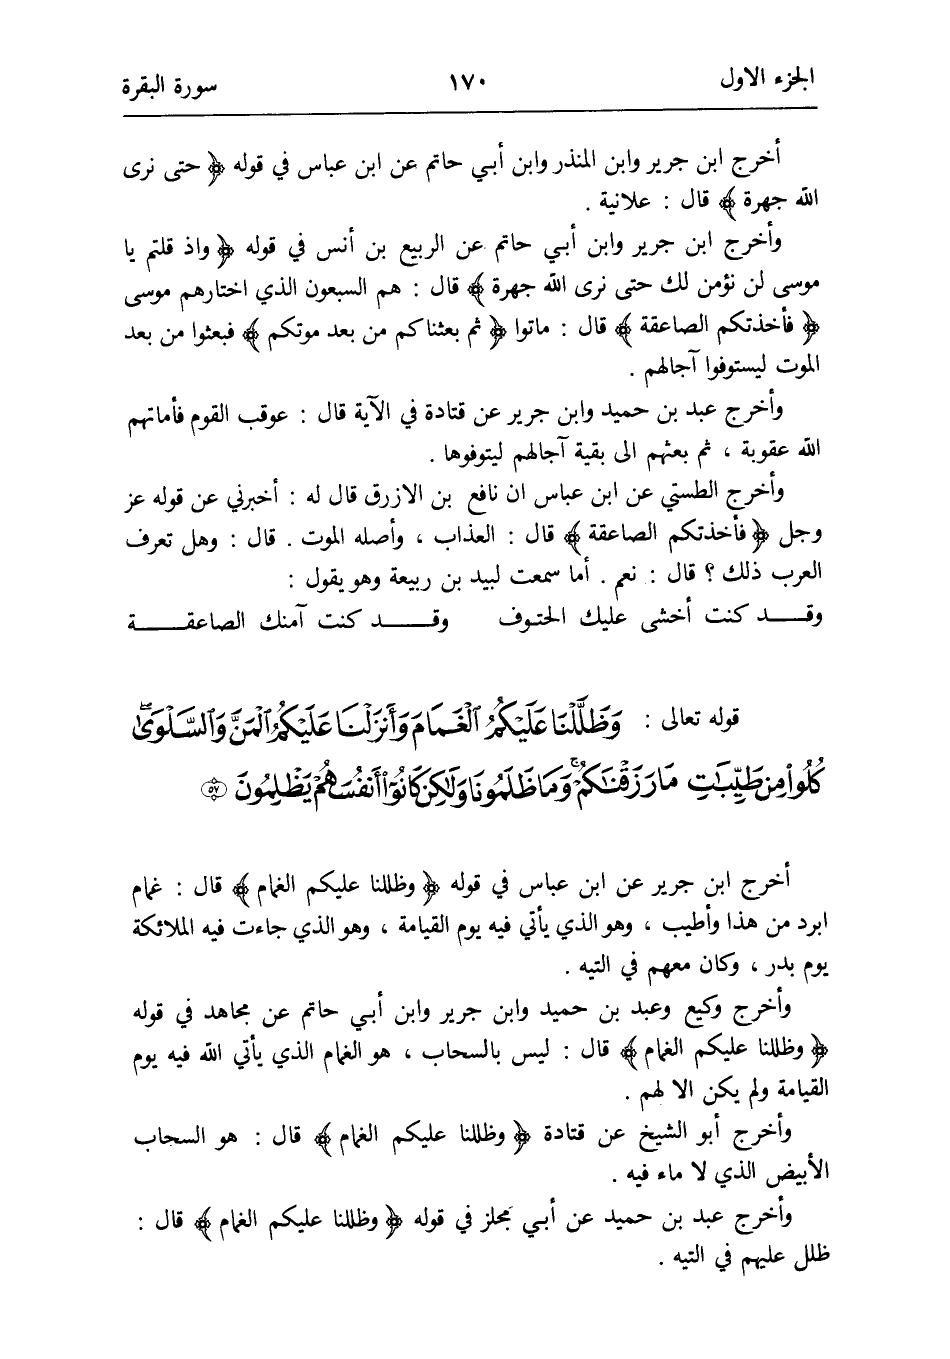 الجزء الاول ١٧٠ سورة البقرة
أخرج ابن جرير وابن المنذر وابن أبي حاتم عن ابن عباس في قوله ﴿ حتى نرى
الله جهرة ﴾ قال : علانية .
وأخرج ابن جرير وابن أبي حاتم عن الربيع بن أنس في قوله ﴿ واذ قلتم يا
موسى لن نؤمن لك حتى نرى الله جهرة ﴾ قال : هم السبعون الذي اختارهم موسى
﴿ فأخذتكم الصاعقة ﴾ قال : ماتوا ﴿ ثم بعثناكم من بعد موتكم ﴾ فبعثوا من بعد
الموت ليستوفوا آجالهم .
وأخرج عبد بن حميد وابن جرير عن قتادة في الآية قال : عوقب القوم فأماتهم
الله عقوبة ، ثم بعثهم الى بقية آجالهم ليتوفوها .
وأخرج الطستي عن ابن عباس ان نافع بن الازرق قال له : أخبرني عن قوله عز
وجل ﴿ فأخذتكم الصاعقة ﴾ قال : العذاب ، وأصله الموت . قال : وهل تعرف
العرب ذلك ؟ قال : نعم . أما سمعت لبيد بن ربيعة وهو يقول :
وقـــد كنت أخشى عليك الحتوف وقـــد كنت آمنك الصاعقـــة
قوله تعالى : وَظَلَّلْنَا عَلَيْكُمُ ٱلْغَمَامَ وَأَنزَلْنَا عَلَيْكُمُ ٱلْمَنَّ وَٱلسَّلْوَىٰۖ
كُلُوا۟ مِن طَيِّبَٰتِ مَا رَزَقْنَٰكُمْۚ وَمَا ظَلَمُونَا وَلَٰكِن كَانُوٓا۟ أَنفُسَهُمْ يَظْلِمُونَ ٥٧
أخرج ابن جرير عن ابن عباس في قوله ﴿ وظللنا عليكم الغمام ﴾ قال : غمام
ابرد من هذا وأطيب ، وهو الذي يأتي فيه يوم القيامة ، وهو الذي جاءت فيه الملائكة
يوم بدر ، وكان معهم في التيه .
وأخرج وكيع وعبد بن حميد وابن جرير وابن أبي حاتم عن مجاهد في قوله
﴿ وظللنا عليكم الغمام ﴾ قال : ليس بالسحاب ، هو الغمام الذي يأتي الله فيه يوم
القيامة ولم يكن الا لهم .
وأخرج أبو الشيخ عن قتادة ﴿ وظللنا عليكم الغمام ﴾ قال : هو السحاب
الأبيض الذي لا ماء فيه .
وأخرج عبد بن حميد عن أبي مجلز في قوله ﴿ وظللنا عليكم الغمام ﴾ قال :
ظلل عليهم في التيه .